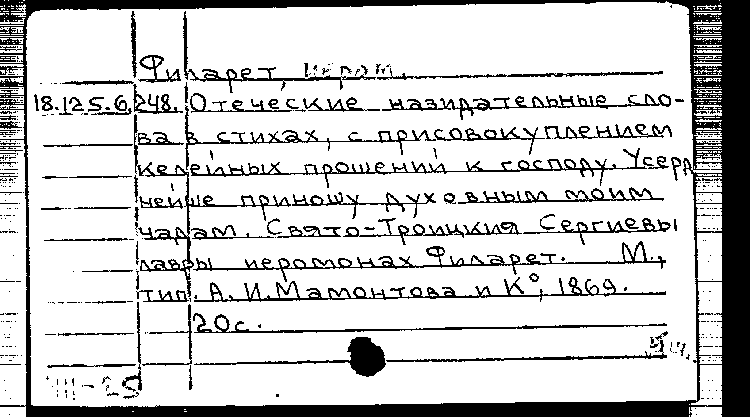 Филарет, иером.
18.125.6.248. Отеческие назидательные сло-
ва в стихах, с присовокуплением
келейных прошений к господу. Усерд
нейше приношу духовным моим
чадам. Свято-Троицкия Сергиевы
лавры иеромонах Филарет. М.,
тип. А. И. Мамонтова и К°, 1869.
20 с.
III-25